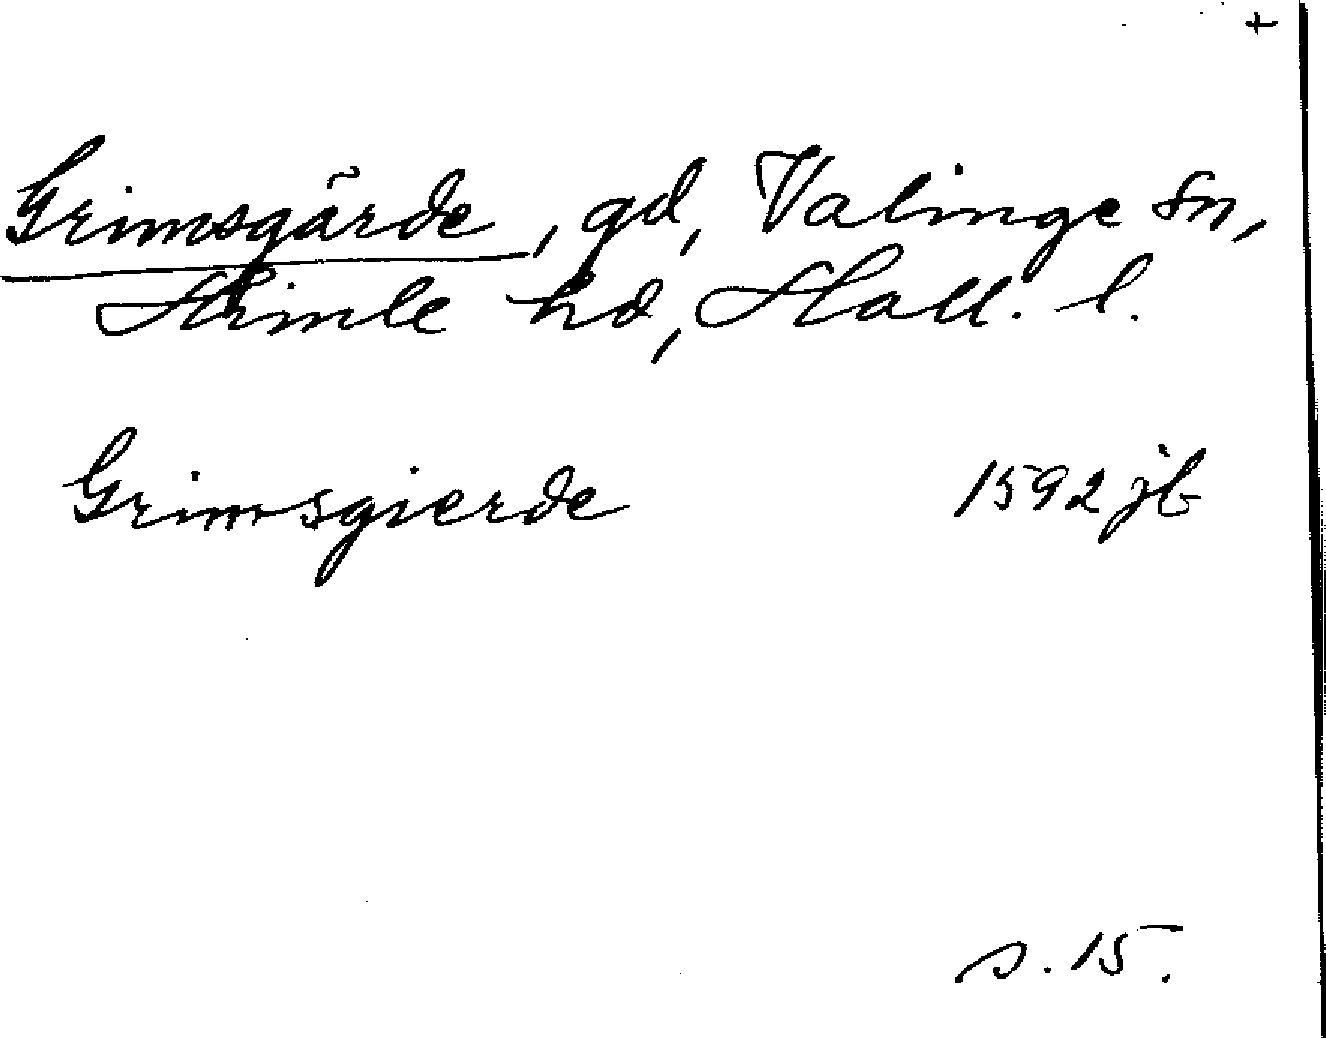 +
Grimsgärde, gd, Valinge sn,
Himle hd, Hall. l.
Grimsgierde 1592 jb
s. 15.